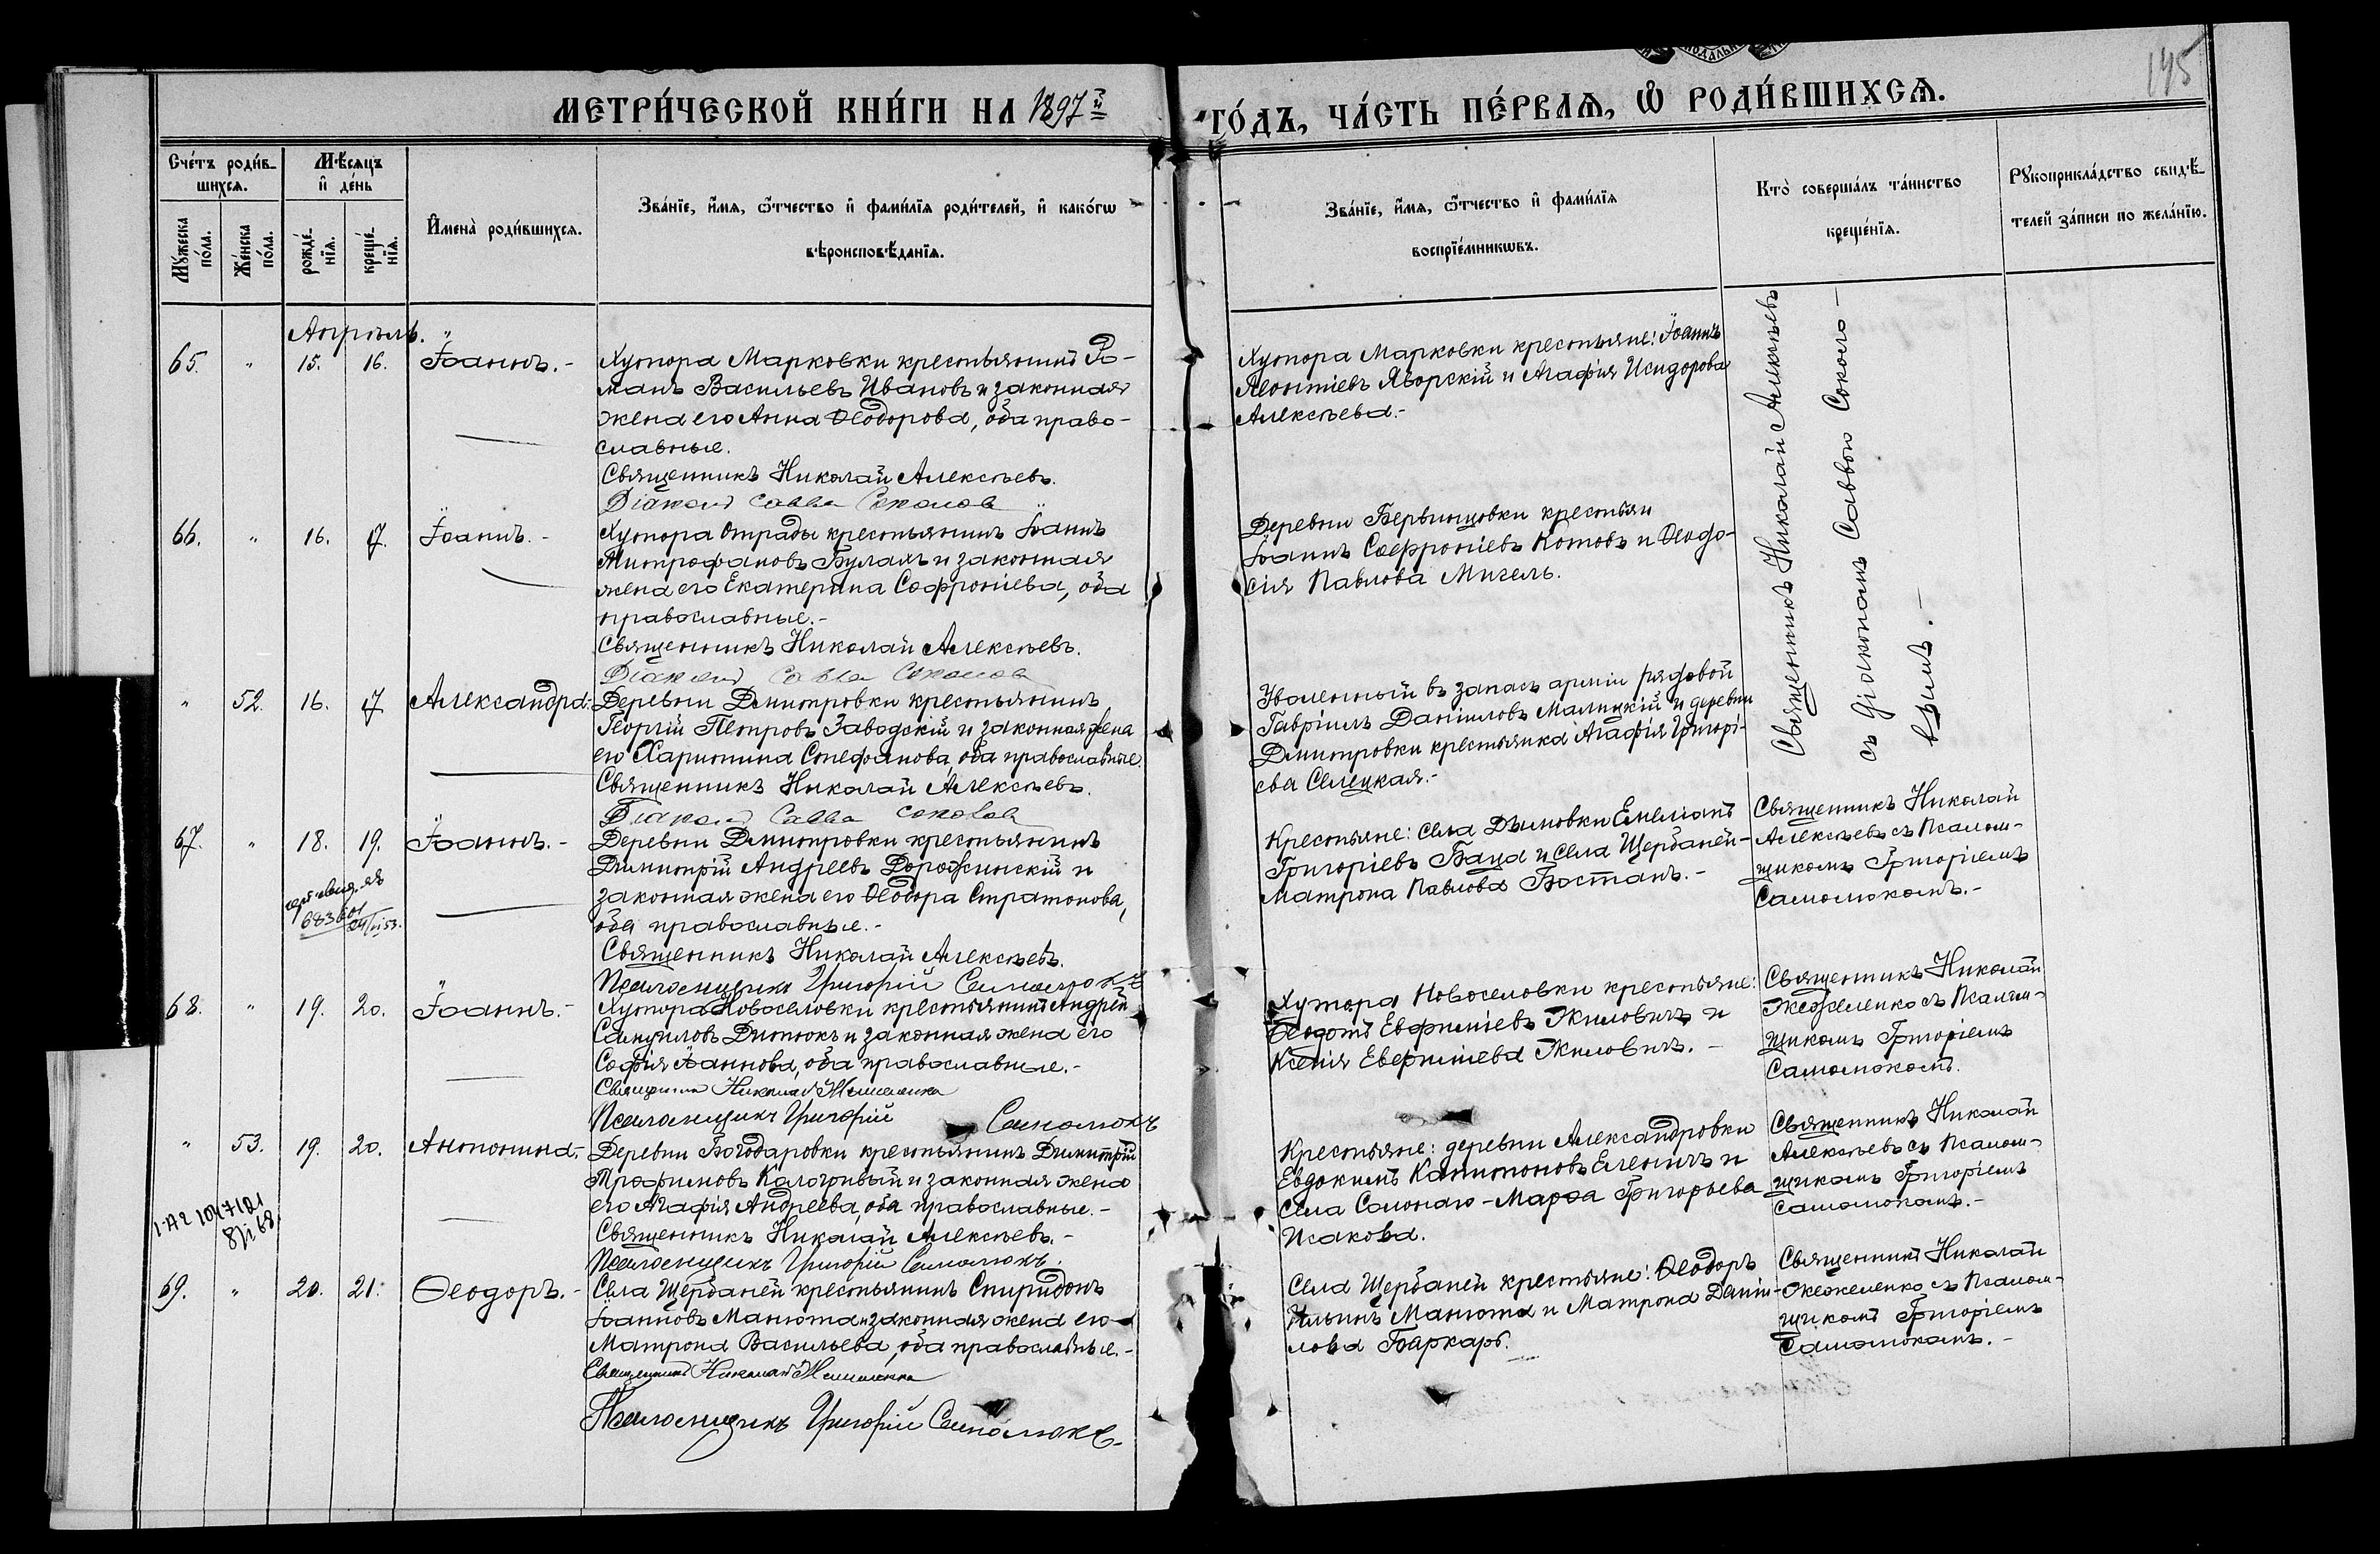 145
МЕТРИ́ЧЕСКОЙ КНИ́ГИ НА 1897й
ГО́ДЪ, ЧА́СТЬ ПЕ́РВАѦ, Ѽ РОДИ́ВШИХСѦ.
Счéтъ роди́в-
шихсѧ.
Мꙋ́жеска
по́ла.
Же́нска
по́ла.
Мѣ́сѧцъ
и҆ де́нь
рожде́-
нїѧ.
креще́-
нїѧ.
И҆мена̀ роди́вшихсѧ.
Зва́нїе, и҆́мѧ, ѻ҆́тчество и҆ фами́лїѧ роди́телей, и҆ како́гѡ
вѣроисповѣ́данїѧ.
Зва́нїе, и҆́мѧ, ѻ҆́тчество и҆ фами́лїѧ
воспрїе́мникѡвъ.
Кто̀ соверша́лъ та́инство
креще́нїѧ.
Рꙋкоприкла́дство свидѣ́-
телей за́писи по жела́нїю.
Апрѣль.
65. " 15. 16. Іоаннъ.-
Хутора Марковки крестьянинъ Ро-
манъ Васильевъ Ивановъ и законная
жена его Анна Ѳеодорова, оба право-
славные.
Священникъ Николай Алексѣевъ.
Діаконъ Савва Соколов
Хутора Марковки крестьяне: Іоаннъ
Леонтіевъ Яворскій и Агафія Исидорова
Алексѣева.-
Священникъ Николай Алексѣевъ
съ діакономъ Саввою Соколо-
вымъ.-
66. " 16. 17. Іоаннъ.-
Хутора Отрады крестьянинъ Іоаннъ
Митрофановъ Булахъ и законная
жена его Екатерина Софроніева, оба
православные.-
Священникъ Николай Алексѣевъ.
Діаконъ Савва Соколов
Іоаннъ Софроніевъ Котовъ и Ѳеодо-
сія Павлова Мигель.
" 52. 16. 17 Александра.
Деревни Дмитровки крестьянинъ
Георгій Петровъ Заводскій и законная жена
его Харитина Стефанова, оба православные.
Священникъ Николай Алексѣевъ.
Діаконъ Савва Соколов
Уволенный въ запасъ арміи рядовой
Гавріилъ Даніиловъ Малицкій и деревни
Дмитровки крестьянка Агафія Григорі-
ева Селецкая.-
67. " 18. 19. Іоаннъ.-
Деревни Дмитровки крестьянинъ
Димитрій Андреевъ Дорожинскій и
законная жена его Ѳеодора Стратонова,
оба православные.-
Священникъ Николай Алексѣевъ.
Псаломщикъ Григорій Самолюкъ
Крестьяне: села Дымовки Емеліанъ
Григоріевъ Баца и села Щербаней-
Матрона Павлова Бостанъ.-
Священникъ Николай
Алексѣевъ съ Псалом-
щикомъ Григоріемъ
Самолюкомъ.-
68. " 19. 20. Іоаннъ.-
Хутора Новоселовки крестьянинъ Андрей
Самуиловъ Дитюкъ и законная жена его
Софія Іоаннова, оба православные.-
Священникъ Николай Жежеленко
Псаломщикъ Григорій Самолюкъ
Хутора Новоселовки крестьяне:
Ѳеодотъ Евфиміевъ Жиловичъ и
Ксенія Евфиміева Жиловичъ.-
Священникъ Николай
Жежеленко съ Псалом-
щикомъ Григоріемъ
Самолюкомъ.
" 53. 19. 20. Антонина.-
Деревни Богодаровки крестьянинъ Димитрій
Трофимовъ Калогривый и законная жена
его Агафія Андреева, оба православные.-
Священникъ Николай Алексѣевъ.-
Псаломщикъ Григорій Самолюкъ.
Крестьяне: деревни Александровки
Евдокимъ Капитоновъ Еленичъ и
села Солонаго-Марѳа Григорьева
Исакова.
Священникъ Николай
Алексѣевъ съ Псалом-
щикомъ Григоріемъ
Самолюкомъ.-
69. " 20. 21. Ѳеодоръ.-
Села Щербаней крестьянинъ Спиридонъ
Іоанновъ Манюта и законная жена его
Матрона Васильева, оба православные.-
Священникъ Николай Жежеленко
Псаломщикъ Григорій Самолюкъ.
Села Щербаней крестьяне: Ѳеодоръ
Ильинъ Манюта и Матрона Даніи-
лова Баркарь.
Священникъ Николай
Жежеленко съ Псалом-
щикомъ Григоріемъ
Самолюкомъ.-